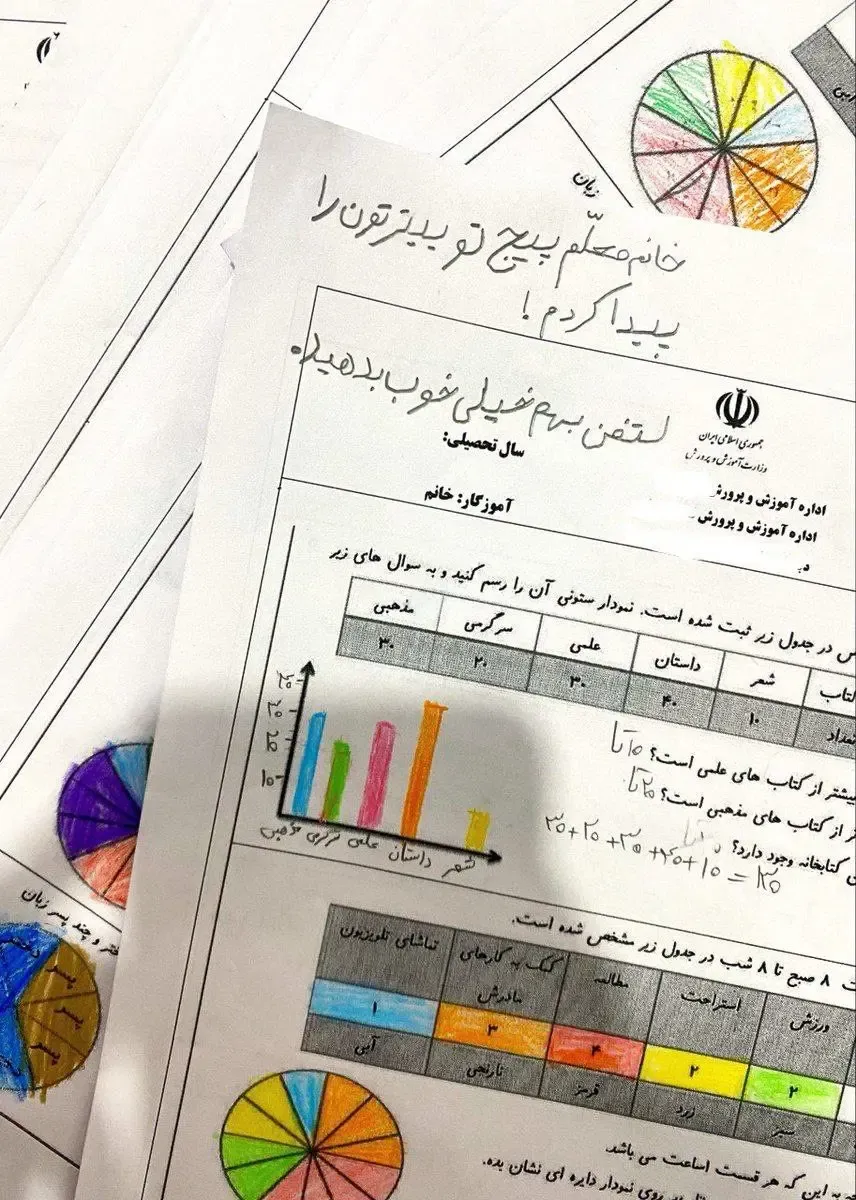 زبان
خانم معلّم پیج تو ییترتون را
پیدا کردم !
لتفن بهم خیلی خوب بدهید.
جمهوری اسلامی ایران
وزارت آموزش و پرورش
سال تحصیلی:
اداره آموزش و پرورش
اداره آموزش و پرورش
آموزگار: خانم
در جدول زیر ثبت شده است. نمودار ستونی آن را رسم کنید و به سوال های زیر
شعر داستان علمی سرگرمی مذهبی
۱۰ ۴۰ ۳۰ ۲۰ ۳۰
بیشتر از کتاب های علمی است؟ ۱۰ تا
از کتاب های مذهبی است؟ ۲۰ تا
کتابخانه وجود دارد؟
۳۰+۲۰+۳۰+۴۰+۱۰=
۳۰
۲۰
۱۰
مذهبی سرگرمی علمی داستان شعر
۸ صبح تا ۸ شب در جدول زیر مشخص شده است.
ورزش استراحت مطالعه کمک به کارهای مادرش تماشای تلویزیون
۲ ۲ ۴ ۳ ۱
سبز زرد قرمز نارنجی آبی
به این که هر قسمت ۱ساعت می باشد
روی نمودار دایره ای نشان بده.
و چند پسر زبان
پسر
پسر
پسر